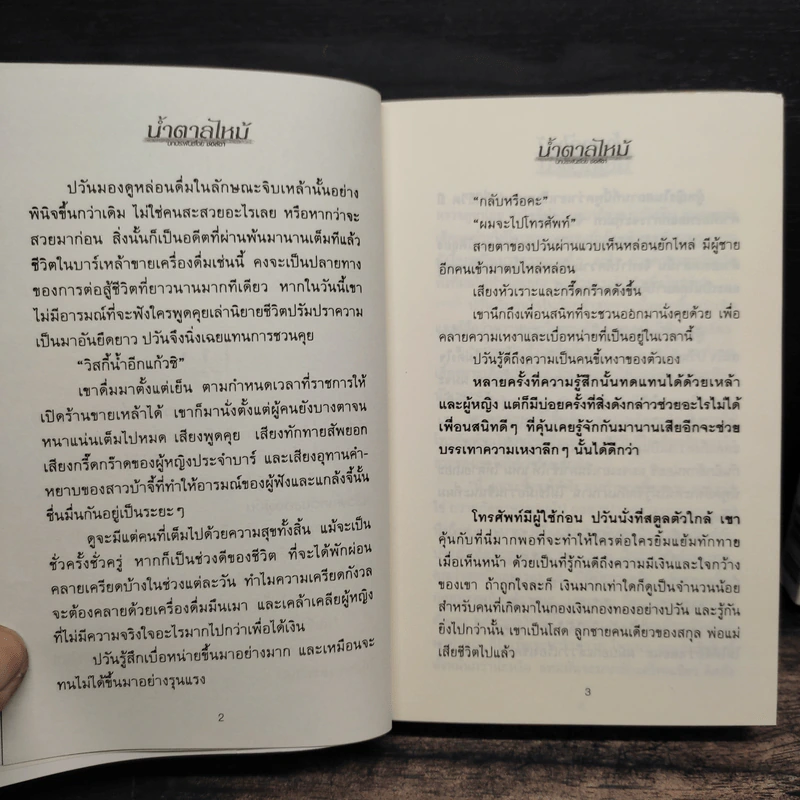 น้ำตาลไหม้
ปวันมองดูหล่อนดื่มในลักษณะจิบเหล้านั้นอย่าง
พินิจขึ้นกว่าเดิม ไม่ใช่คนสะสวยอะไรเลย หรือหากว่าจะ
สวยมาก่อน สิ่งนั้นก็เป็นอดีตที่ผ่านพ้นมานานเต็มทีแล้ว
ชีวิตในบาร์เหล้าขายเครื่องดื่มเช่นนี้ คงจะเป็นปลายทาง
ของการต่อสู้ชีวิตที่ยาวนานมากทีเดียว หากในวันนี้เขา
ไม่มีอารมณ์ที่จะฟังใครพูดคุยเล่านิยายชีวิตปรัมปราความ
เป็นมาอันยืดยาว ปวันจึงนิ่งเฉยแทนการชวนคุย
“วิสกี้น้ำอีกแก้วซิ”
เขาดื่มมาตั้งแต่เย็น ตามกำหนดเวลาที่ราชการให้
เปิดร้านขายเหล้าได้ เขาก็มานั่งตั้งแต่ผู้คนยังบางตาจน
หนาแน่นเต็มไปหมด เสียงพูดคุย เสียงทักทายสัพยอก
เสียงกรี๊ดกร๊าดของผู้หญิงประจำบาร์ และเสียงอุทานคำ-
หยาบของสาวบ้าจี้ที่ทำให้อารมณ์ของผู้ฟังและแกล้งจี้นั้น
ชื่นมื่นกันอยู่เป็นระยะๆ
ดูจะมีแต่คนที่เต็มไปด้วยความสุขทั้งสิ้น แม้จะเป็น
ชั่วครั้งชั่วครู่ หากก็เป็นช่วงดีของชีวิต ที่จะได้พักผ่อน
คลายเครียดบ้างในช่วงแต่ละวัน ทำไมความเครียดกังวล
จะต้องคลายด้วยเครื่องดื่มมึนเมา และเคล้าเคลียผู้หญิง
ที่ไม่มีความจริงใจอะไรมากไปกว่าเพื่อได้เงิน
ปวันรู้สึกเบื่อหน่ายขึ้นมาอย่างมาก และเหมือนจะ
ทนไม่ได้ขึ้นมาอย่างรุนแรง
2
น้ำตาลไหม้
“กลับหรือคะ”
“ผมจะไปโทรศัพท์”
สายตาของปวันผ่านแวบเห็นหล่อนยักไหล่ มีผู้ชาย
อีกคนเข้ามาตบไหล่หล่อน
เสียงหัวเราะและกรี๊ดกร๊าดดังขึ้น
เขานึกถึงเพื่อนสนิทที่จะชวนออกมานั่งคุยด้วย เพื่อ
คลายความเหงาและเบื่อหน่ายที่เป็นอยู่ในเวลานี้
ปวันรู้ดีถึงความเป็นคนขี้เหงาของตัวเอง
หลายครั้งที่ความรู้สึกนั้นทดแทนได้ด้วยเหล้า
และผู้หญิง แต่ก็มีบ่อยครั้งที่สิ่งดังกล่าวช่วยอะไรไม่ได้
เพื่อนสนิทดีๆ ที่คุ้นเคยรู้จักกันมานานเสียอีกจะช่วย
บรรเทาความเหงาลึกๆ นั้นได้ดีกว่า
โทรศัพท์มีผู้ใช้ก่อน ปวันนั่งที่สตูลตัวใกล้ เขา
คุ้นกับที่นี่มากพอที่จะทำให้ใครต่อใครยิ้มแย้มทักทาย
เมื่อเห็นหน้า ด้วยเป็นที่รู้กันดีถึงความมีเงินและใจกว้าง
ของเขา ถ้าถูกใจละก็ เงินมากเท่าใดก็ดูเป็นจำนวนน้อย
สำหรับคนที่เกิดมาในกองเงินกองทองอย่างปวัน และรู้กัน
ยิ่งไปกว่านั้น เขาเป็นโสด ลูกชายคนเดียวของสกุล พ่อแม่
เสียชีวิตไปแล้ว
3